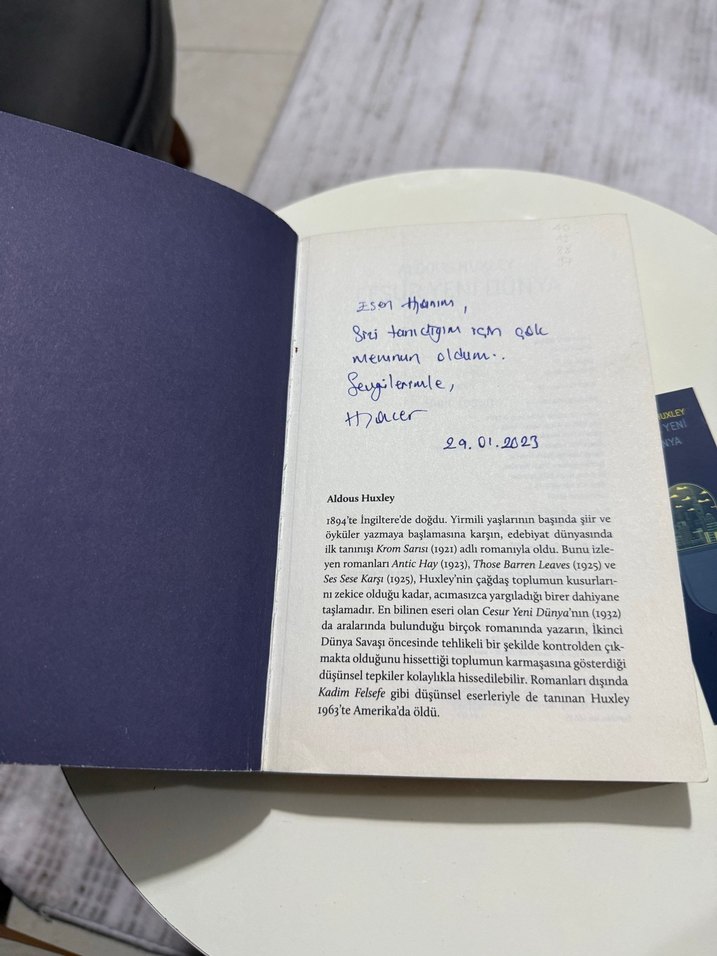 Esen Hanım,
Sizi tanıdığım için çok
memnun oldum..
Sevgilerimle,
Hacer
29.01.2023
Aldous Huxley
1894'te İngiltere'de doğdu. Yirmili yaşlarının başında şiir ve
öyküler yazmaya başlamasına karşın, edebiyat dünyasında
ilk tanınışı Krom Sarısı (1921) adlı romanıyla oldu. Bunu izle-
yen romanları Antic Hay (1923), Those Barren Leaves (1925) ve
Ses Sese Karşı (1925), Huxley'nin çağdaş toplumun kusurları-
nı zekice olduğu kadar, acımasızca yargıladığı birer dahiyane
taşlamadır. En bilinen eseri olan Cesur Yeni Dünya'nın (1932)
da aralarında bulunduğu birçok romanında yazarın, İkinci
Dünya Savaşı öncesinde tehlikeli bir şekilde kontrolden çık-
makta olduğunu hissettiği toplumun karmaşasına gösterdiği
düşünsel tepkiler kolaylıkla hissedilebilir. Romanları dışında
Kadim Felsefe gibi düşünsel eserleriyle de tanınan Huxley
1963'te Amerika'da öldü.
HUXLEY
YENİ
NYA